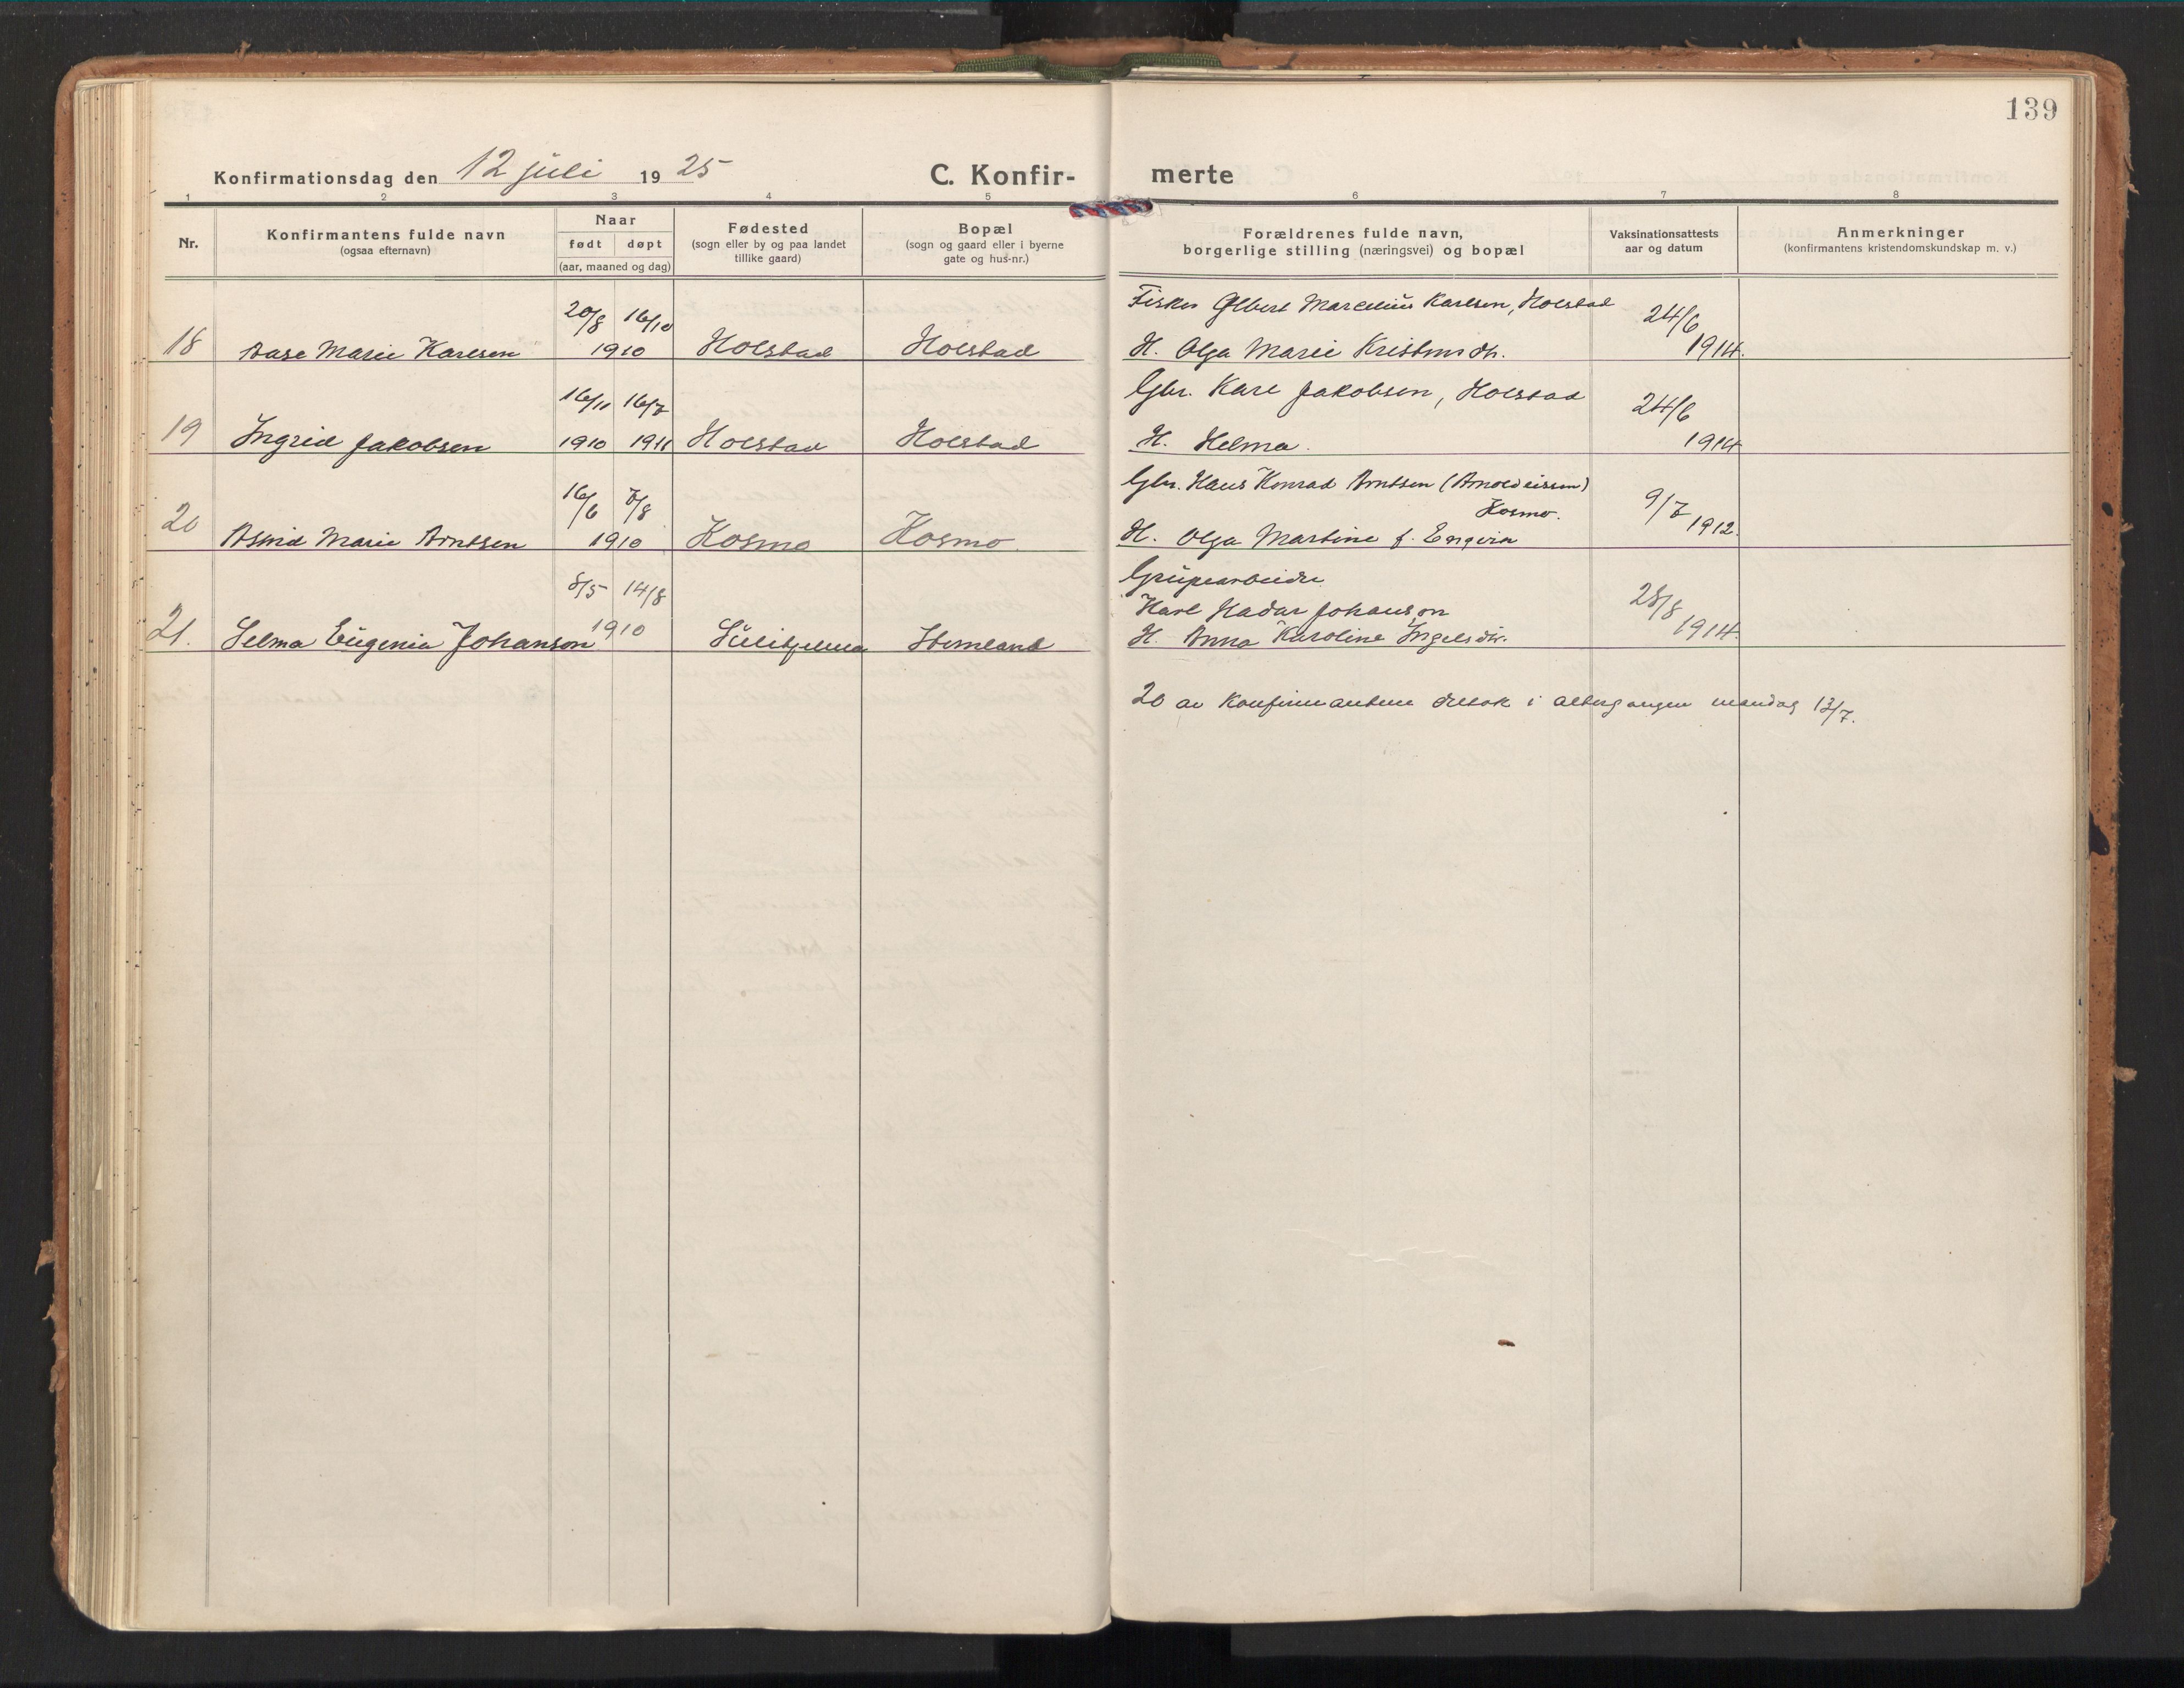 139
Konfirmationsdag den 12 juli 1925
C. Konfir- merte
1 2 3 4 5 6 7 8
Nr.
Konfirmantens fulde navn
(ogsaa efternavn)
Naar
født døpt
(aar, maaned og dag)
Fødested
(sogn eller by og paa landet
tillike gaard)
Bopæl
(sogn og gaard eller i byerne
gate og hus-nr.)
Forældrenes fulde navn,
borgerlige stilling (næringsvei) og bopæl
Vaksinationsattests
aar og datum
Anmerkninger
(konfirmantens kristendomskundskap m. v.)
20/8 16/10 Fisker Albert Marcelius Karlsen, Holstad 24/6
18 Aase Marie Karlsen 1910 Holstad Holstad H. Olga Marie Kristensdtr. 1914.
16/11 16/7 Gbr. Karl Jakobsen, Holstad 24/6
19 Ingrid Jakobsen 1910 1911 Holstad Holstad H. Helma. 1914
16/6 7/8 Gbr. Hans Konrad Arntsen (Arnoldissen) 9/7
Kosmo.
20 Astrid Marie Arntsen 1910 Kosmo Kosmo. H. Olga Martine f. Engvik 1912.
8/5 14/8 Grupearbeider
Karl Hadar Johanson 28/8
21. Selma Eugenia Johanson 1910 Sulitjelma H. Anna Karoline Ingelsdtr. 1914.
20 av konfirmantene deltok i altergangen mandag 13/7.